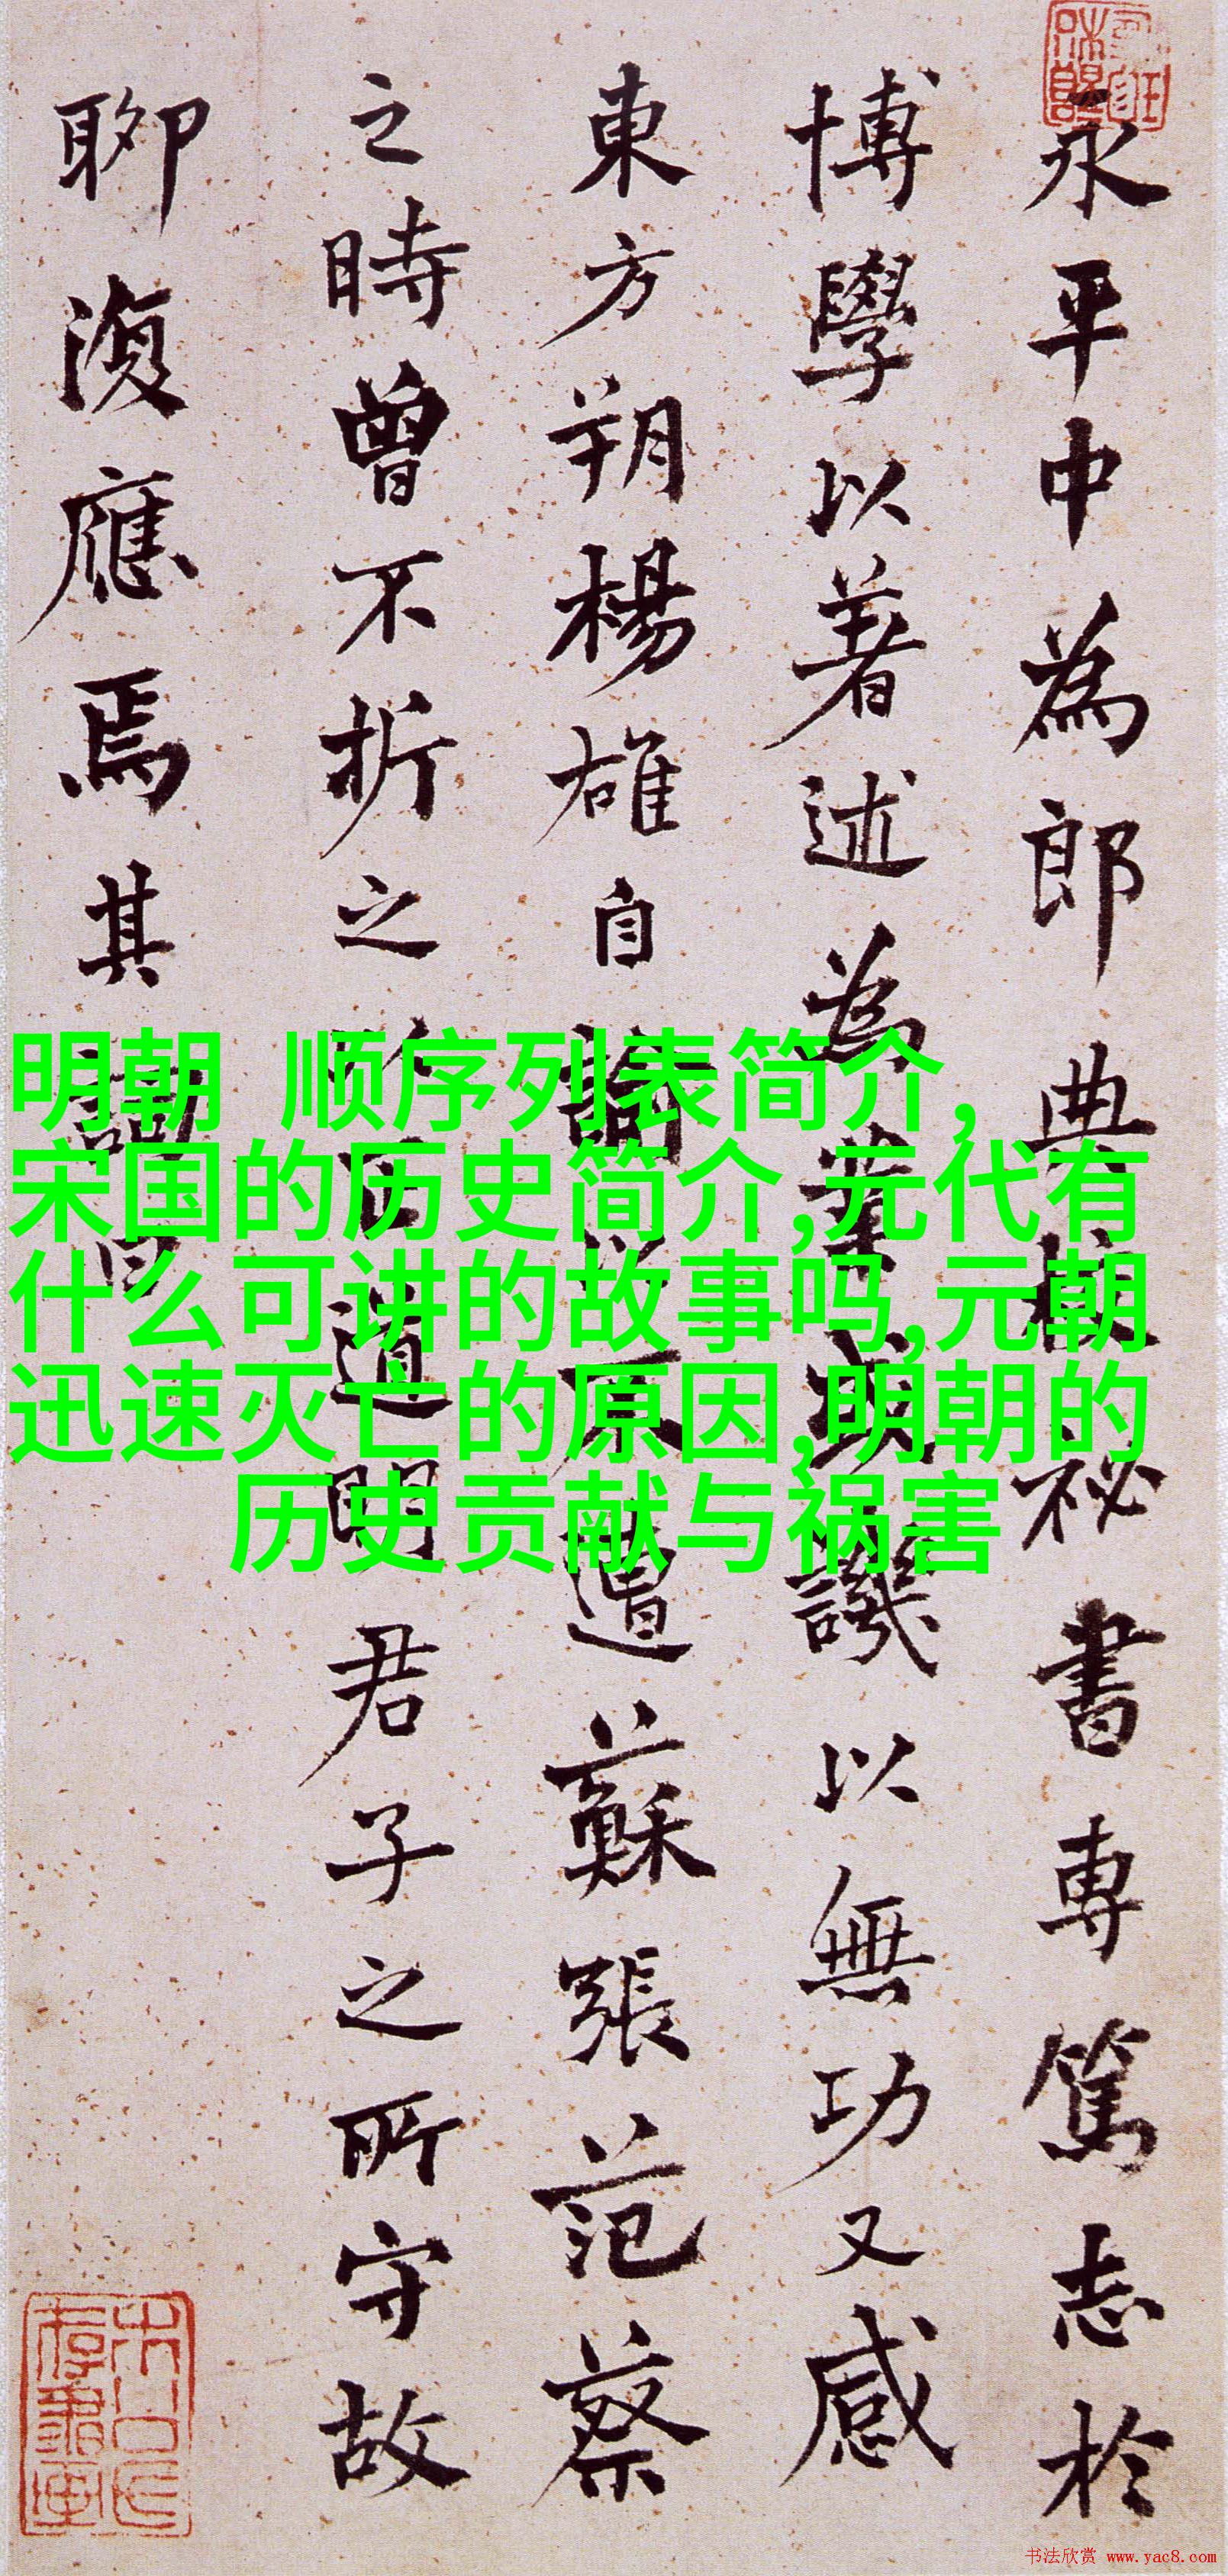 永平中為郎典校祕書專篤志於
博學以著述為業或譏以無功又感
東方朔楊雄自諭以不遭蘇張范蔡
之時曾不折之以正道明君子之所守故
聊復應焉其詞曰
明朝 顺序列表简介,
宋国的历史简介,元代有
什么可讲的故事吗,元朝
迅速灭亡的原因,明朝的
历史贡献与祸害
书法欣赏 www.yac8.com